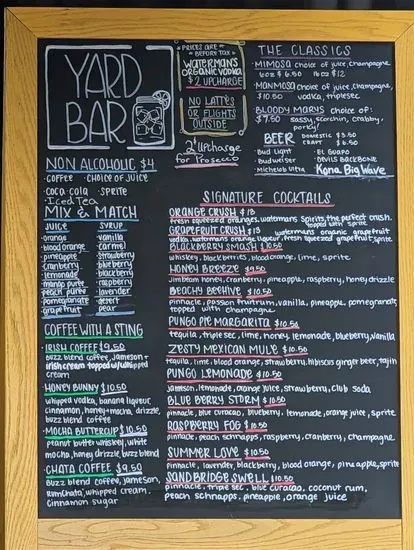 YARD
BAR
*PRICES ARE
BEFORE TAX*
WATERMAN'S
ORGANIC VODKA
$2 UPCHARGE
NO LATTES
OR FLIGHTS
OUTSIDE
2$ UPCharge
for Prosecco
THE CLASSICS
·MIMOSA choice of juice, champagne
6oz $6.50 16oz $12
·MANMOSA choice of juice, champagne,
$10.50 vodka, triplesec
·BLOODY MARYS choice of:
$7.50 sassy, scorchin, crabby,
porky!
BEER DOMESTIC $3.50
CRAFT $6.50
·Bud Light · EL GUAPO
·Budweiser · DEVILS BACKBONE
·Michelob Ultra Kona Big Wave
NON ALCOHOLIC $4
·COFFEE ·CHOICE OF JUICE
·COCA-COLA ·SPRITE
·Iced Tea
MIX & MATCH
JUICE SYRUP
orange vanilla
blood orange caramel
pineapple strawberry
cranberry blueberry
lemonade blackberry
mango puree raspberry
peach puree lavender
pomegranate desert
grapefruit pear
COFFEE WITH A STING
IRISH COFFEE $9.50
buzz blend coffee, Jameson +
irish cream topped w/ whipped
cream
HONEY BUNNY $10.50
whipped vodka, banana liqueur,
cinnamon, honey+mocha, drizzle,
buzz blend coffee
·MOCHA BUTTERCUP $10.50
peanut butter whiskey, white
mocha, honey drizzle, buzz blend
·CHATA COFFEE $9.50
buzz blend coffee, jameson,
rumchata, whipped cream,
cinnamon sugar
SIGNATURE COCKTAILS
ORANGE CRUSH $13
fresh squeezed oranges, watermans spirits, the perfect crush.
topped with sprite
GRAPEFRUIT CRUSH $13 watermans organic grapefruit
vodka, watermans orange liqueur, fresh squeezed grapefruit, sprite
BLACKBERRY SMASH $10.50
whiskey, blackberries, blood orange, lime, sprite
HONEY BREEZE $9.50
Jimbeam honey, cranberry, pineapple, raspberry, honey drizzle
BEACHY BEEHIVE $10.50
pinnacle, passion fruitrum, vanilla, pineapple, pomegranate,
topped with champagne
PUNGO PIE MARGARITA $10.50
tequila, triple sec, lime, honey, lemonade, blueberry, vanilla
ZESTY MEXICAN MULE $10.50
tequila, lime, blood orange, strawberry, hibiscus ginger beer, tajin
PUNGO LEMONADE $10.50
jameson, lemonade, orange juice, strawberry, club soda
BLUE BERRY STORM $10.50
pinnacle, blue curacao, blueberry, lemonade, orange juice, sprite
RASPBERRY FOG $10.50
pinnacle, peach schnapps, raspberry, cranberry, champagne
SUMMER LOVE $10.50
pinnacle, lavender, blackberry, blood orange, pineapple, sprite
SANDBRIDGE SWELL $10.50
pinnacle, triple sec, blue curacao, coconut rum,
peach schnapps, pineapple, orange juice